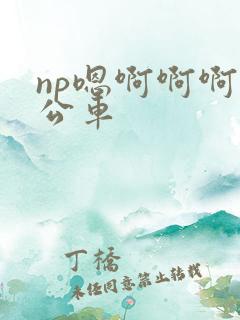 np嗯啊啊啊
公车
丁橋
未经同意禁止转载